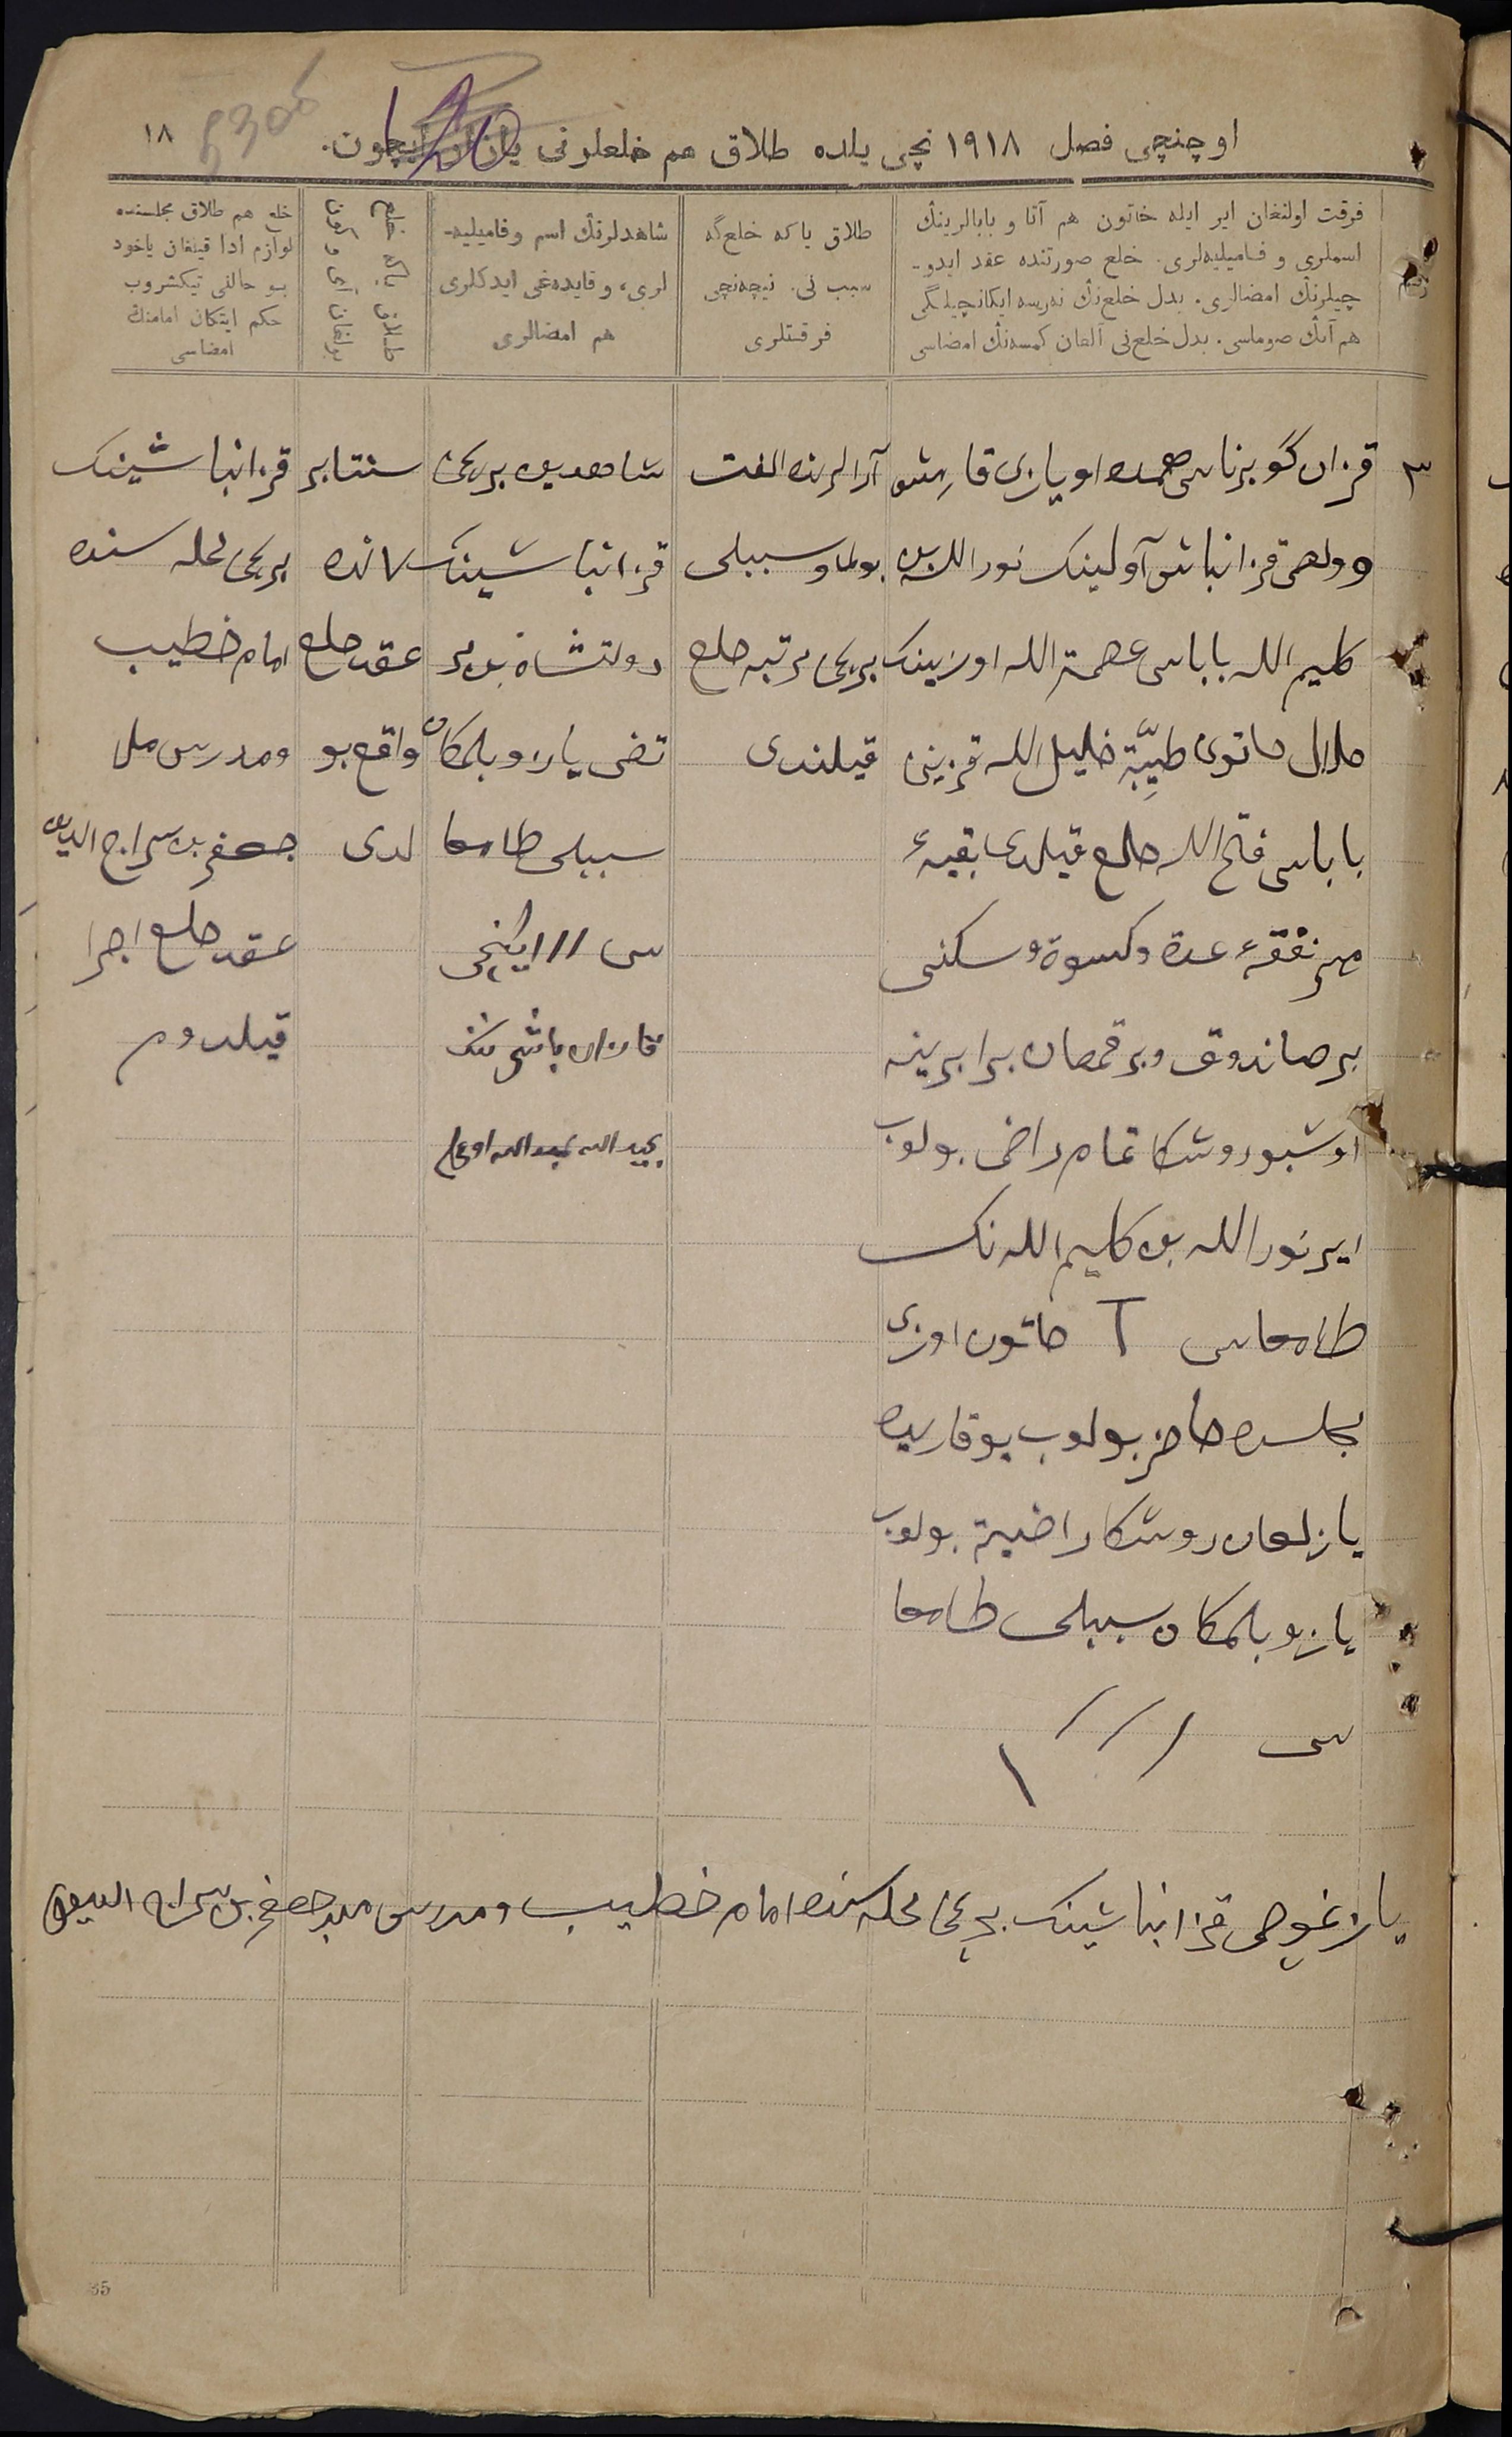 اوچنچی فصل ۱۹۱۸ نچی یلده طلاق هم خلعلرنی یازار ایچون.
۱۸
فرقت اولنغان ایر ایله خاتون هم آتا و بابالرینڭ
اسملری و فامیلیه‌لری. خلع صورتنده عقد ایدو-
چیلرنڭ امضالری. بدل خلع‌نڭ نه‌رسه ایکانچیلگی
هم آنڭ صوماسی. بدل خلع‌نی آلغان کمسه‌نڭ امضاسی
طلاق یا که خلع‌گه
سبب نی. نیچه‌نچی
فرقتلری
شاهدلرنڭ اسم وفامیلیه-
لری، و قایده‌غی ایدکلری
هم امضالری
طلاق یاکه خلع
بولغان آی و کون
خلع هم طلاق مجلسنده
لوازم ادا قیلغان یاخود
بو حالنی تیکشروب
حکم ایتکان امامنڭ
امضاسی
۳
قزان گوبرناسی اویازی قارمش
وولصی قزانباش آولینک نورالله بن
کلیم الله باباسی عصمة الله اوزینک
حلال خاتونی طیّبة خلیل الله قزینی
باباسی فتح الله خلع قیلدی بقیهٔ
مهر نفقهٔ عدة وکسوة و سکنی
بر صاندوق وبر قمصان برابرینه
اوشبو روشکا تمام راضی بولوب
ایر نورالله بن کلیم الله نک
طامغاسی T خاتون اوزی
مجلسده حاضر بولوب یوقاریده
یازلغان روشکا راضیة بولوب
یازو بلمکان سببلی طامغا
سی ////
آرالرنده الفت
بولماو سببلی
برنچی مرتبه خلع
قیلندی
شاهدین برنچی
قزانباشینک
دولتشاه بن
یازو بلمکان
سببلی طامغا
سی /// ایکنچی
قازان باشی ننک
عبیدالله عبدالله اوغلی
سنتابر
۷ نده
عقد خلع
واقع بو
لدی
قزانباشینک
برنچی محله سنده
امام خطیب
ومدرس ملا
جعفر بن سراج الدین
عقد خلع اجرا
قیلدوم
یازغوچی قزانباشینک برنچی محله سنده امام خطیب ومدرس ملا جعفر بن سراج الدین
35